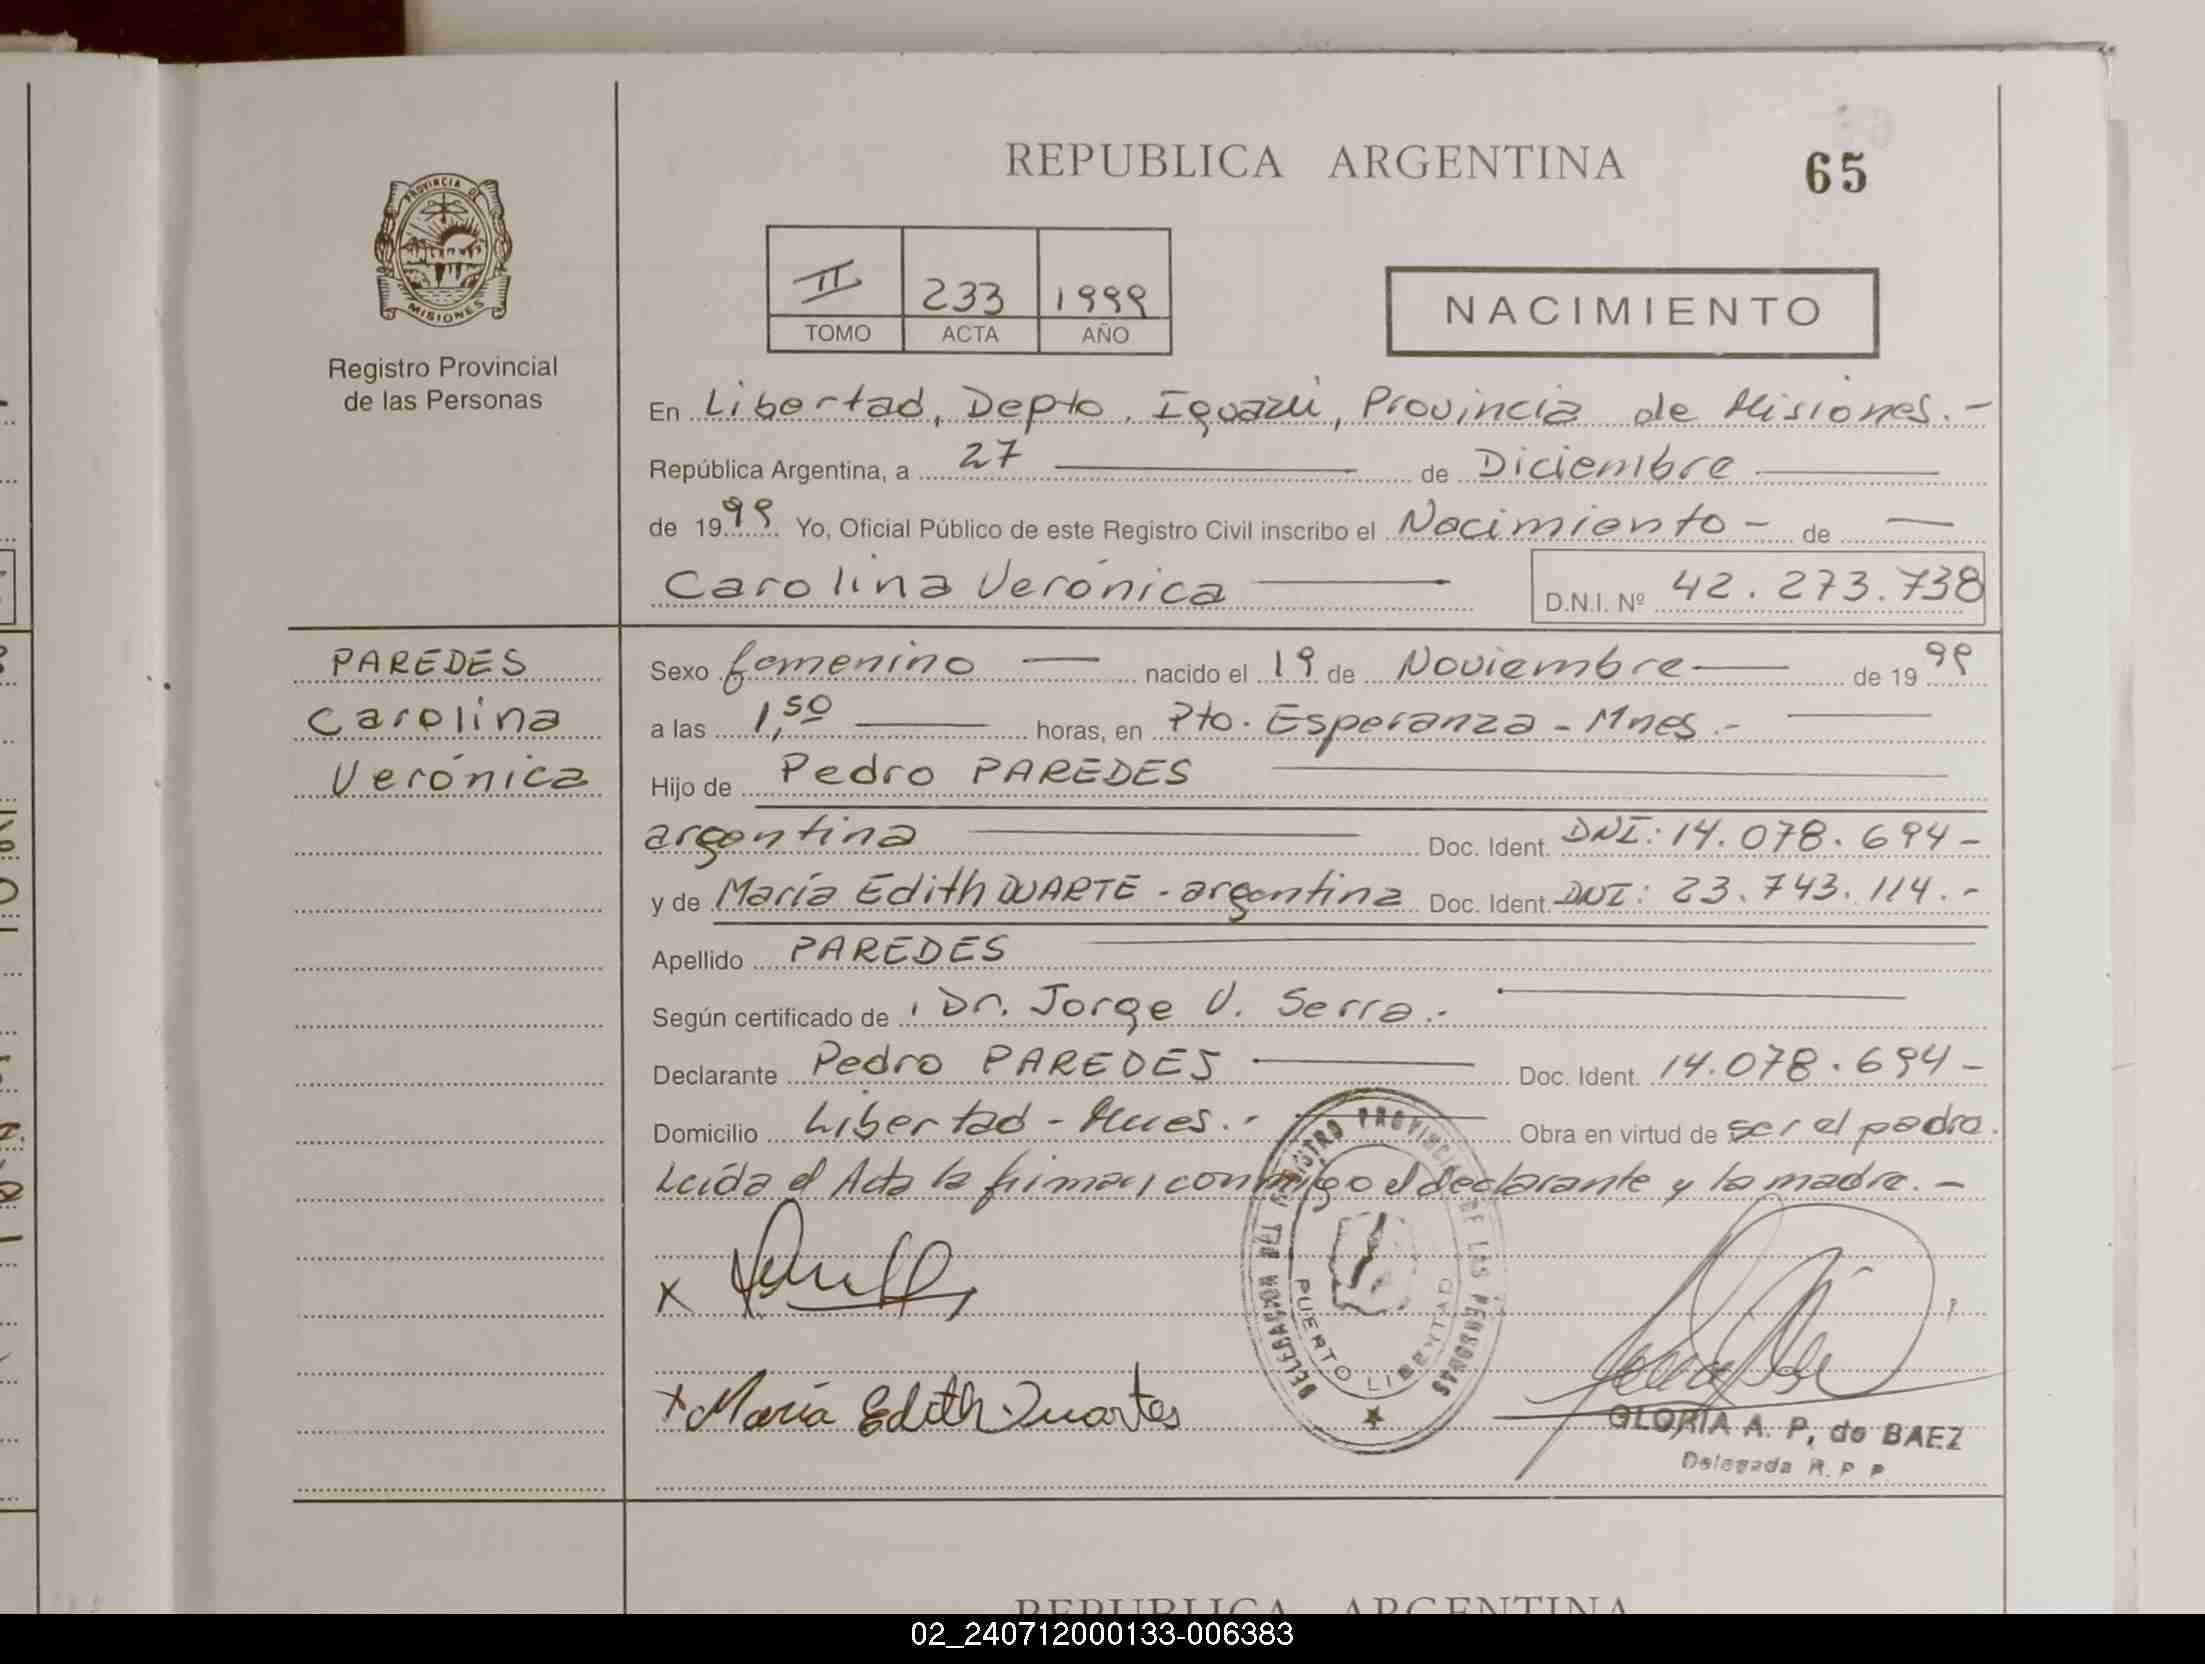 REPUBLICA ARGENTINA
65
PROVINCIA DE
MISIONES
Registro Provincial
de las Personas
II 233 1999
TOMO ACTA AÑO
NACIMIENTO
En Libertad, Depto. Iguazú, Provincia de Misiones.-
República Argentina, a 27 de Diciembre
de 1999 Yo, Oficial Público de este Registro Civil inscribo el Nacimiento - de
Carolina Verónica
D.N.I. Nº 42.273.738
PAREDES
Carolina
Verónica
Sexo femenino nacido el 19 de Noviembre de 1999
a las 1,50 horas, en Pto. Esperanza - Mnes.-
Hijo de Pedro PAREDES
argentina Doc. Ident. DNI: 14.078.694-
y de María Edith DUARTE - argentina Doc. Ident. DNI: 23.743.114.-
Apellido PAREDES
Según certificado de Dr. Jorge V. Serra.-
Declarante Pedro PAREDES Doc. Ident. 14.078.694-
Domicilio Libertad - Mnes.- Obra en virtud de ser el padre.
Leída el Acta la firman conmigo el declarante y la madre.-
x
x María Edith Duartes
DELEGACION DEL REGISTRO PROVINCIAL DE LAS PERSONAS
PUERTO LIBERTAD
GLORIA A. P, de BAEZ
Delegada R. P P
REPUBLICA ARGENTINA
02_240712000133-006383